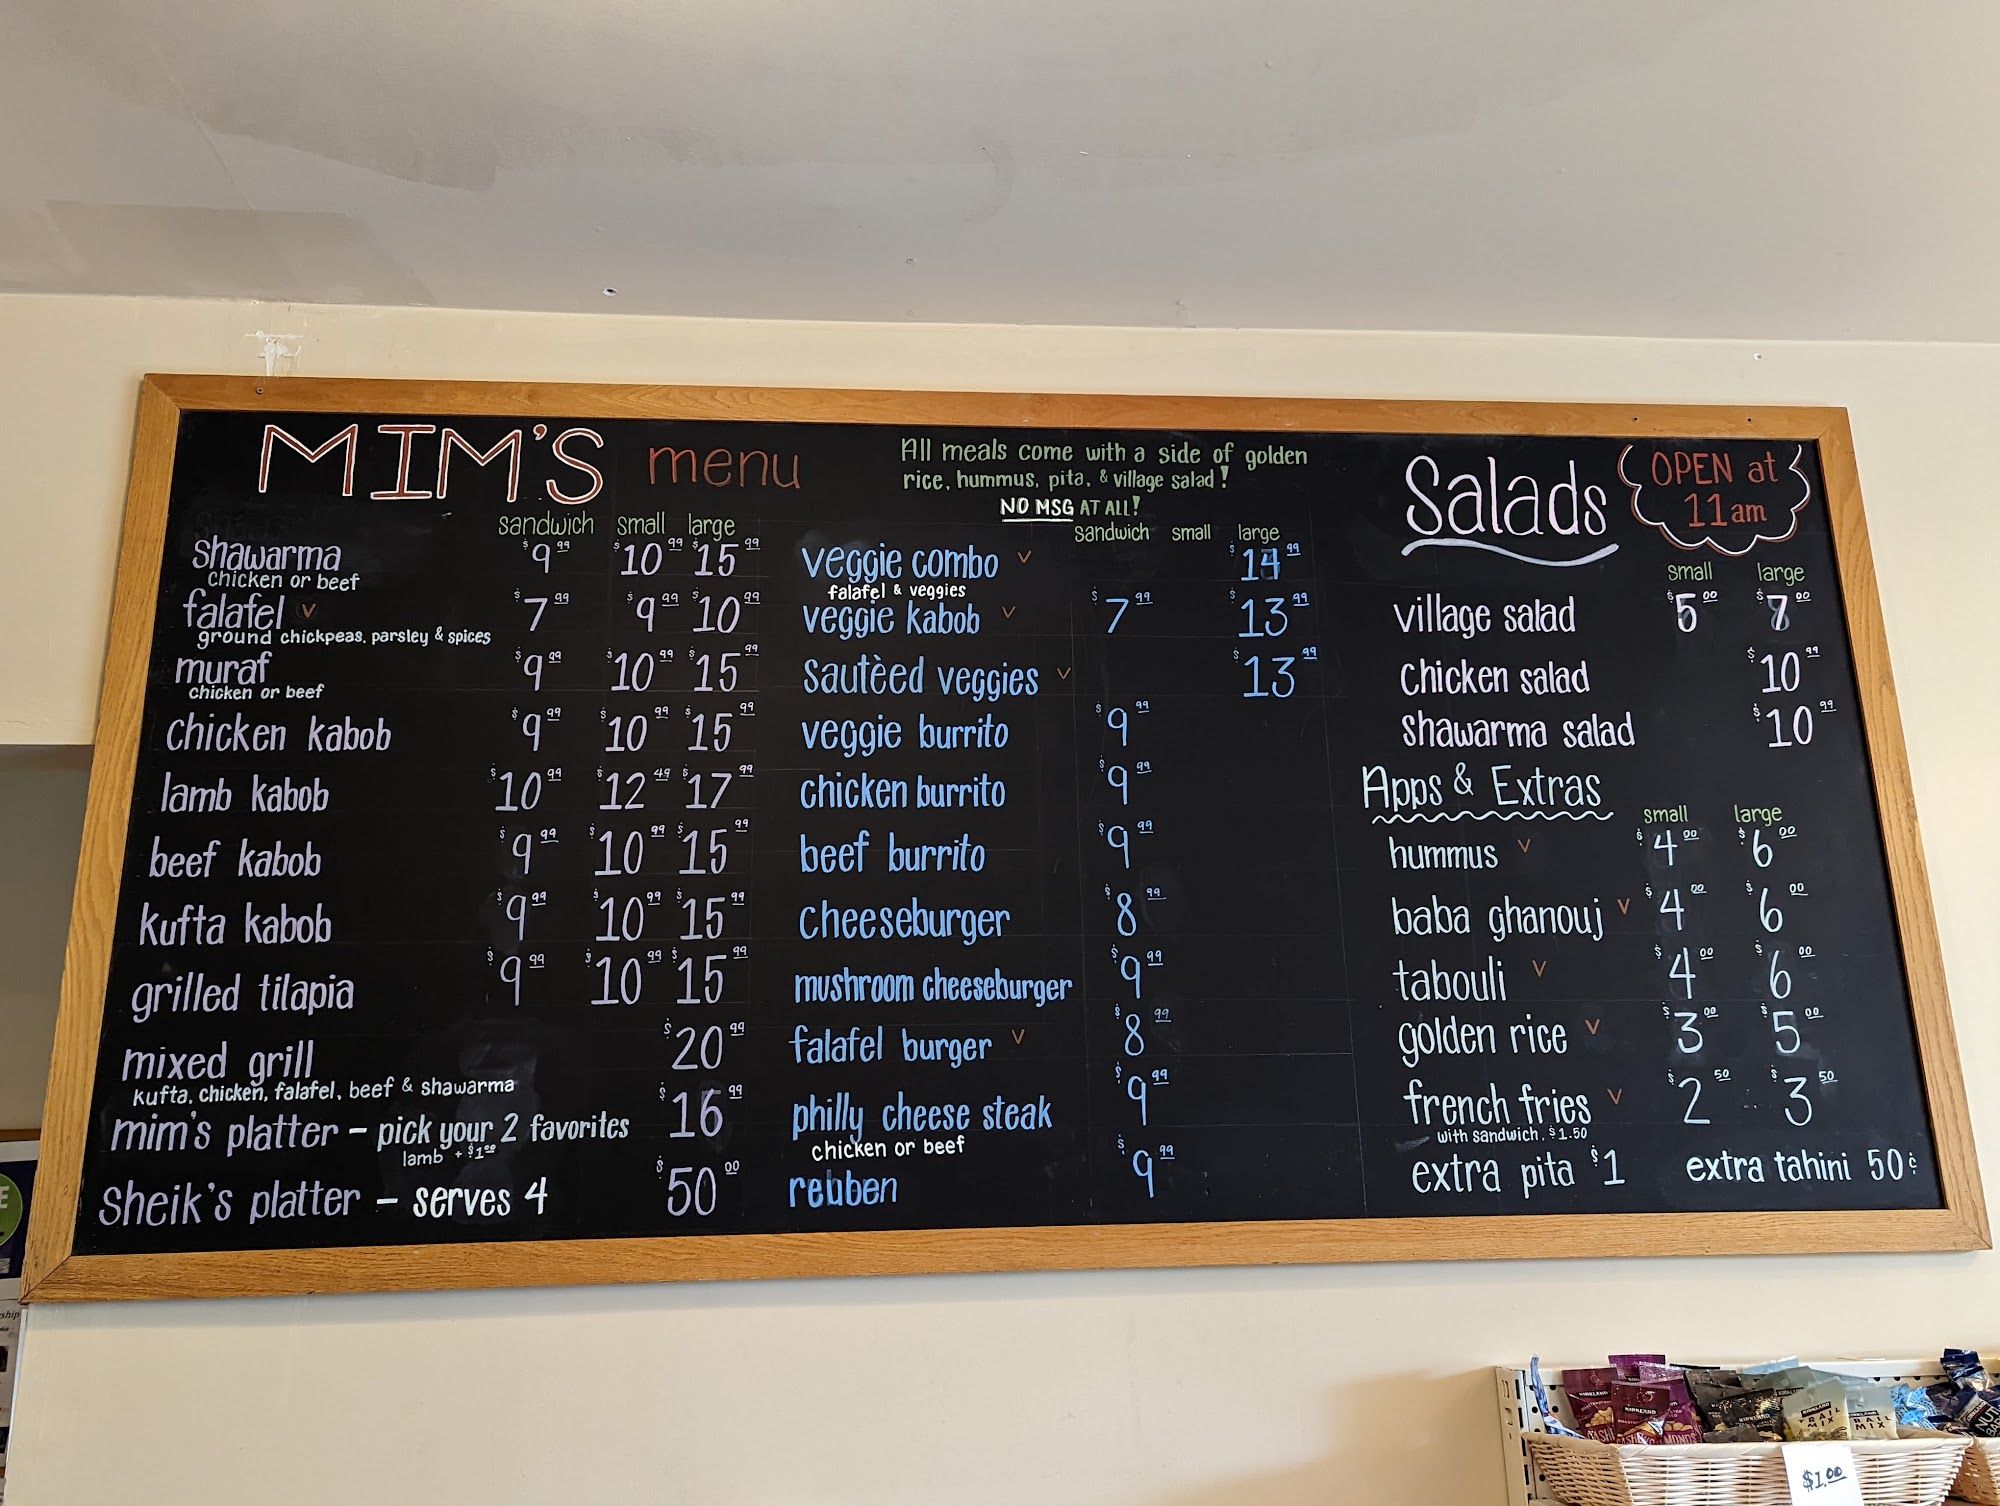 MIM'S menu
All meals come with a side of golden
rice, hummus, pita, & village salad!
NO MSG AT ALL!
sandwich small large
shawarma $9.99 $10.99 $15.99
chicken or beef
falafel V $7.99 $9.99 $10.99
ground chickpeas, parsley & spices
muraf $9.99 $10.99 $15.99
chicken or beef
chicken kabob $9.99 $10.99 $15.99
lamb kabob $10.99 $12.49 $17.99
beef kabob $9.99 $10.99 $15.99
kufta kabob $9.99 $10.99 $15.99
grilled tilapia $9.99 $10.99 $15.99
mixed grill $20.99
kufta, chicken, falafel, beef & shawarma
mim's platter - pick your 2 favorites $16.99
lamb + $1.00
sheik's platter - serves 4 $50.00
sandwich small large
veggie combo V $14.99
falafel & veggies
veggie kabob V $7.99 $13.99
sautèed veggies V $13.99
veggie burrito $9.99
chicken burrito $9.99
beef burrito $9.99
cheeseburger $8.99
mushroom cheeseburger $9.99
falafel burger V $8.99
philly cheese steak $9.99
chicken or beef
reuben $9.99
Salads
OPEN at
11am
small large
village salad $5.00 $7.00
chicken salad $10.99
shawarma salad $10.99
Apps & Extras
small large
hummus V $4.00 $6.00
baba ghanouj V $4.00 $6.00
tabouli V $4.00 $6.00
golden rice V $3.00 $5.00
french fries V $2.50 $3.50
with sandwich, $1.50
extra pita $1 extra tahini 50¢
KIRKLAND
KIRKLAND
TRAIL
MIX
$1.00